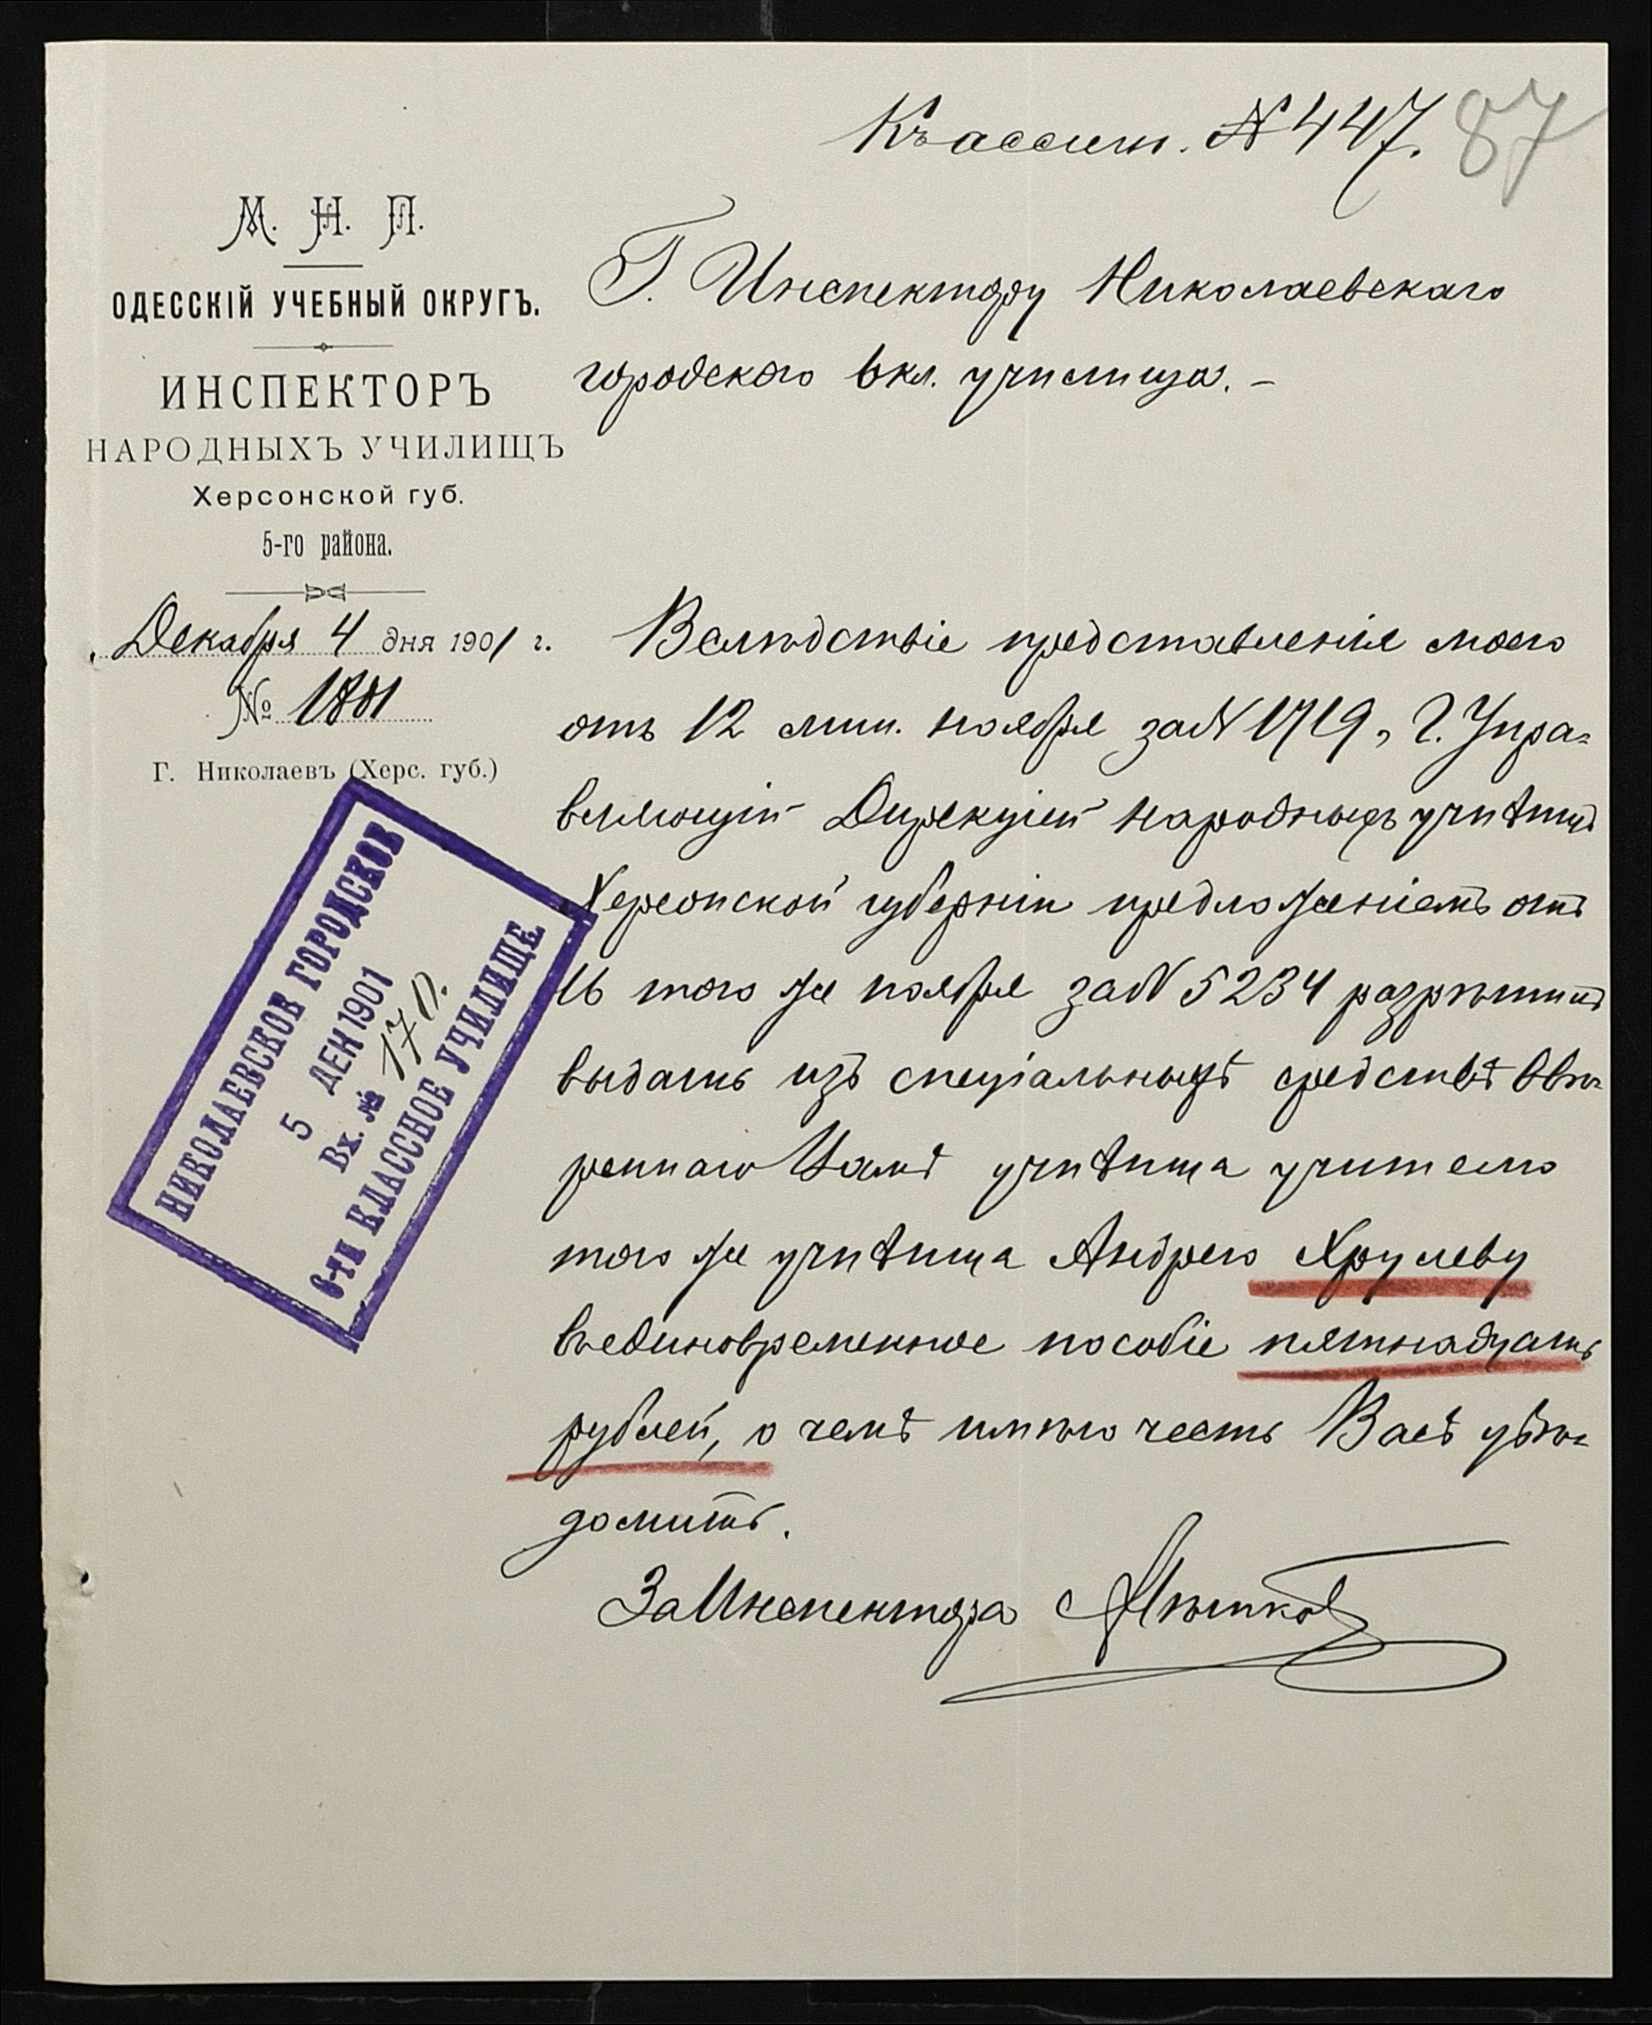 Къ ассигн. № 447.
87
М. Н. П.
ОДЕССКІЙ УЧЕБНЫЙ ОКРУГЪ.
ИНСПЕКТОРЪ
НАРОДНЫХЪ УЧИЛИЩЪ
Херсонской губ.
5-го района.
Декабря 4 дня 1901 г.
№ 1801
Г. Николаевъ (Херс. губ.)
НИКОЛАЕВСКОЕ ГОРОДСКОЕ
5 ДЕК 1901
Вх. № 170.
6-ТИ КЛАССНОЕ УЧИЛИЩЕ
Г. Инспектору Николаевскаго
городского 6 кл. училища. –
Вслѣдствіе представленія моего
отъ 12 мин. ноября за № 1719, Г. Упра-
вляющій Дирекціей народныхъ учи-щъ
Херсонской губерніи предложеніемъ отъ
16 того же ноября за № 5234 разрѣшилъ
выдать изъ спеціальныхъ средствъ ввѣ-
реннаго Вамъ учи-ща учителю
того же учи-ща Андрею Хрулеву
въ единовременное пособіе пятнадцать
рублей, о чемъ имѣю честь Васъ увѣ-
домить.
За Инспектора